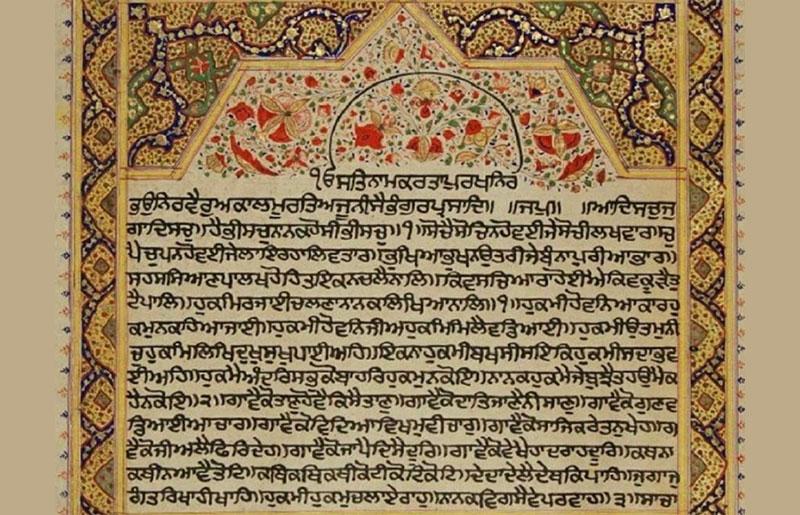 ੴਸਤਿਨਾਮਕਰਤਾਪੁਰਖੁਨਿਰ
ਭਉਨਿਰਵੈਰੁਅਕਾਲਮੂਰਤਿਅਜੂਨੀਸੈਭੰਗੁਰਪ੍ਰਸਾਦਿ॥ ॥ਜਪੁ॥ ॥ਆਦਿਸਚੁਜੁ
ਗਾਦਿਸਚੁ॥ਹੈਭੀਸਚੁਨਾਨਕਹੋਸੀਭੀਸਚੁ॥੧॥ਸੋਚੈਸੋਚਿਨਹੋਵਈਜੇਸੋਚੀਲਖਵਾਰ॥ਚੁ
ਪੈਚੁਪਨਹੋਵਈਜੇਲਾਇਰਹਾਲਿਵਤਾਰ॥ਭੁਖਿਆਭੁਖਨਉਤਰੀਜੇਬੰਨਾਪੁਰੀਆਭਾਰ॥
ਸਹਸਸਿਆਣਪਾਲਖਹੋਹਿਤਇਕਨਚਲੈਨਾਲਿ॥ਕਿਵਸਚਿਆਰਾਹੋਈਐਕਿਵਕੂੜੈਤੁ
ਟੈਪਾਲਿ॥ਹੁਕਮਿਰਜਾਈਚਲਣਾਨਾਨਕਲਿਖਿਆਨਾਲਿ॥੧॥ਹੁਕਮੀਹੋਵਨਿਆਕਾਰਹੁ
ਕਮੁਨਕਹਿਆਜਾਈ॥ਹੁਕਮੀਹੋਵਨਿਜੀਅਹੁਕਮਿਮਿਲੈਵਡਿਆਈ॥ਹੁਕਮੀਉਤਮੁਨੀ
ਚੁਹੁਕਮਿਲਿਖਿਦੁਖਸੁਖਪਾਈਅਹਿ॥ਇਕਨਾਹੁਕਮੀਬਖਸੀਸਇਕਿਹੁਕਮੀਸਦਾਭਵ
ਈਅਹਿ॥ਹੁਕਮੈਅੰਦਰਿਸਭੁਕੋਬਾਹਰਿਹੁਕਮਨਕੋਇ॥ਨਾਨਕਹੁਕਮੈਜੇਬੁਝੈਤਹਉਮੈਕ
ਹੈਨਕੋਇ॥੨॥ਗਾਵੈਕੋਤਾਣੁਹੋਵੈਕਿਸੈਤਾਣੁ॥ਗਾਵੈਕੋਦਾਤਿਜਾਣੈਨੀਸਾਣੁ॥ਗਾਵੈਕੋਗੁਣਵ
ਡਿਆਈਆਚਾਰ॥ਗਾਵੈਕੋਵਿਦਿਆਵਿਖਮੁਵੀਚਾਰੁ॥ਗਾਵੈਕੋਸਾਜਿਕਰੇਤਨੁਖੇਹ॥ਗਾ
ਵੈਕੋਜੀਅਲੈਫਿਰਿਦੇਹ॥ਗਾਵੈਕੋਜਾਪੈਦਿਸੈਦੂਰਿ॥ਗਾਵੈਕੋਵੇਖੈਹਾਦਰਾਹਦੂਰਿ॥ਕਥਨਾ
ਕਥੀਨਆਵੈਤੋਟਿ॥ਕਥਿਕਥਿਕਥੀਕੋਟੀਕੋਟਿਕੋਟਿ॥ਦੇਦਾਦੇਲੈਦੇਥਕਿਪਾਹਿ॥ਜੁਗਾਜੁ
ਗੰਤਰਿਖਾਹੀਖਾਹਿ॥ਹੁਕਮੀਹੁਕਮੁਚਲਾਏਰਾਹੁ॥ਨਾਨਕਵਿਗਸੈਵੇਪਰਵਾਹੁ॥੩॥ਸਾਚਾ